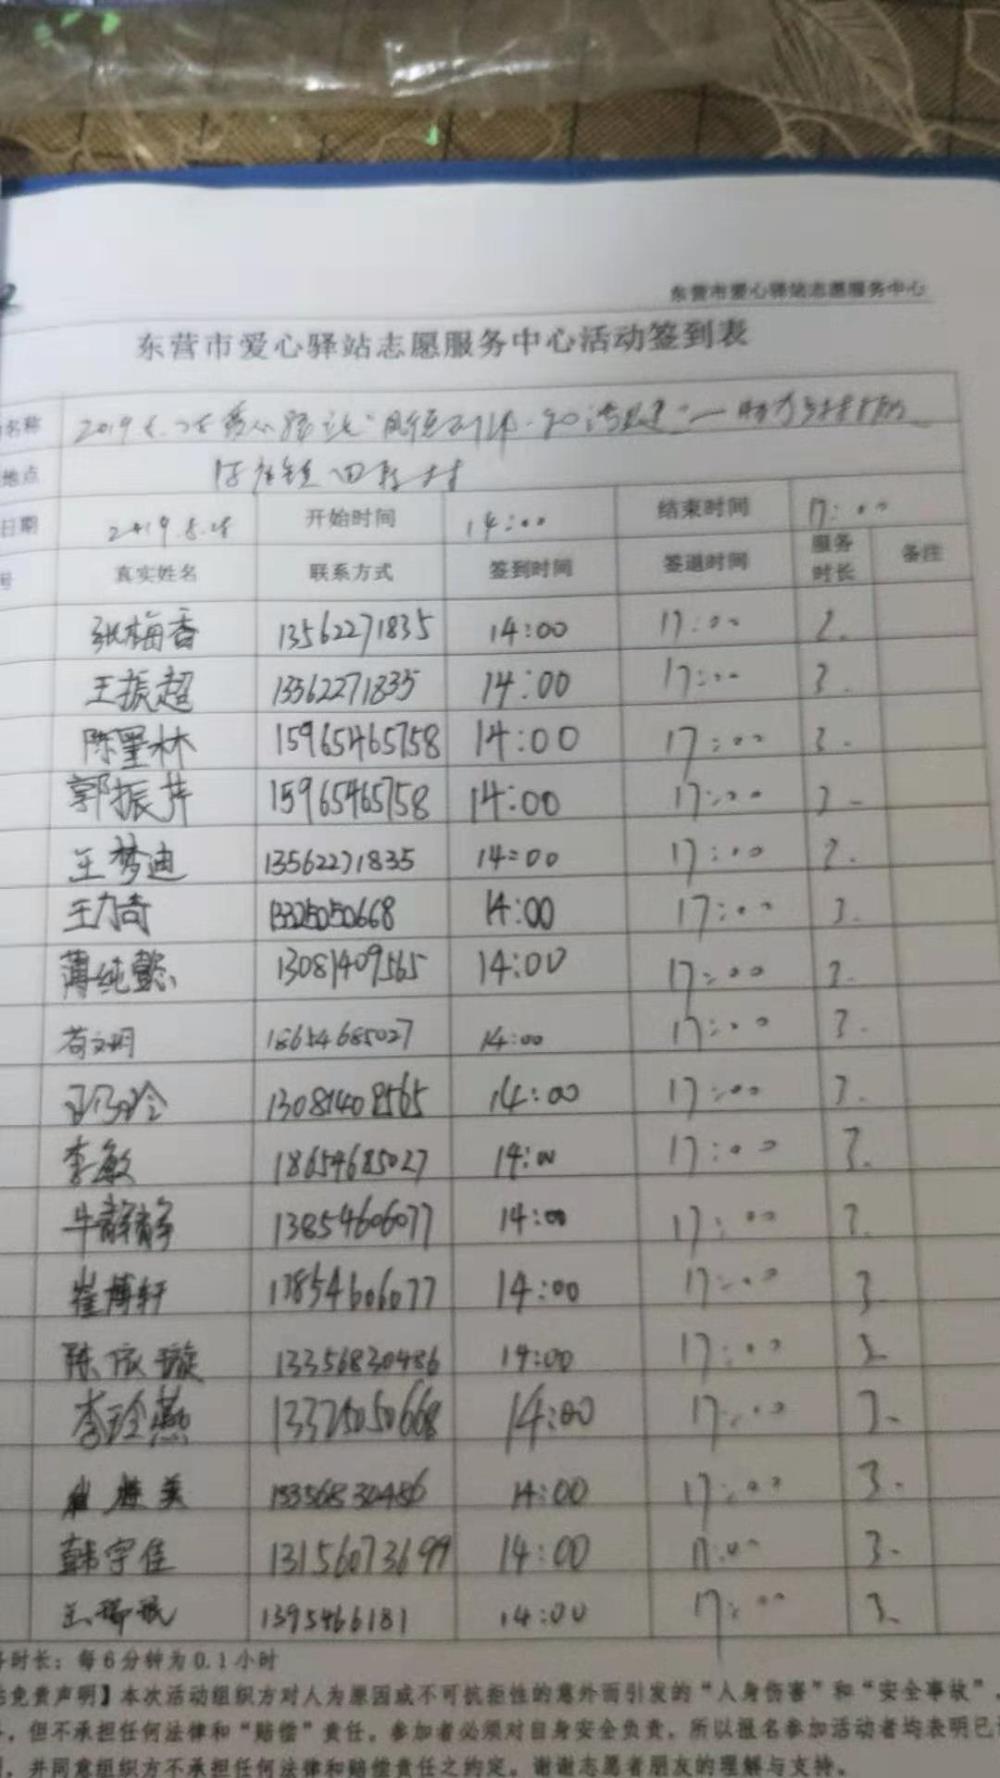 东营市爱心驿站志愿服务中心
东营市爱心驿站志愿服务中心活动签到表
名称 2019
地点
日期 2019.8.28 开始时间 14:00 结束时间 17:00
号 真实姓名 联系方式 签到时间 签退时间 服务时长 备注
张梅香 13562271835 14:00 17:00
王振超 13562271835 14:00 17:00 3.
陈墨林 15965465758 14:00 17:00 3.
郭振萍 15965465758 14:00 17:00 3.
王梦迪 13562271835 14:00 17:00 3.
王力奇 13325050668 14:00 17:00 3.
薄纯懿 13081409565 14:00 17:00 3.
苟文明 18654685027 14:00 17:00 3.
13081408565 14:00 17:00 3.
李敏 18654685027 14:00 17:00 3.
牛静静 13854606077 14:00 17:00 3.
崔博轩 13854606077 14:00 17:00 3
陈依璇 13356830486 14:00 17:00 3
李玲燕 13325050668 14:00 17:00 3.
13356830486 14:00 17:00 3.
韩宇佳 13156073699 14:00 17:00 3.
1395466181 14:00 17:00 3.
时长：每6分钟为0.1小时
免责声明】本次活动组织方对人为原因或不可抗拒性的意外而引发的“人身伤害”和“安全事故”，
，但不承担任何法律和“赔偿”责任。参加者必须对自身安全负责。所以报名参加活动者均表明已
，并同意组织方不承担任何法律和赔偿责任之约定。谢谢志愿者朋友的理解与支持。